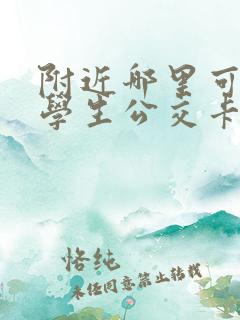 附近哪里可
學生公交卡
恪纯
未经同意禁止转载